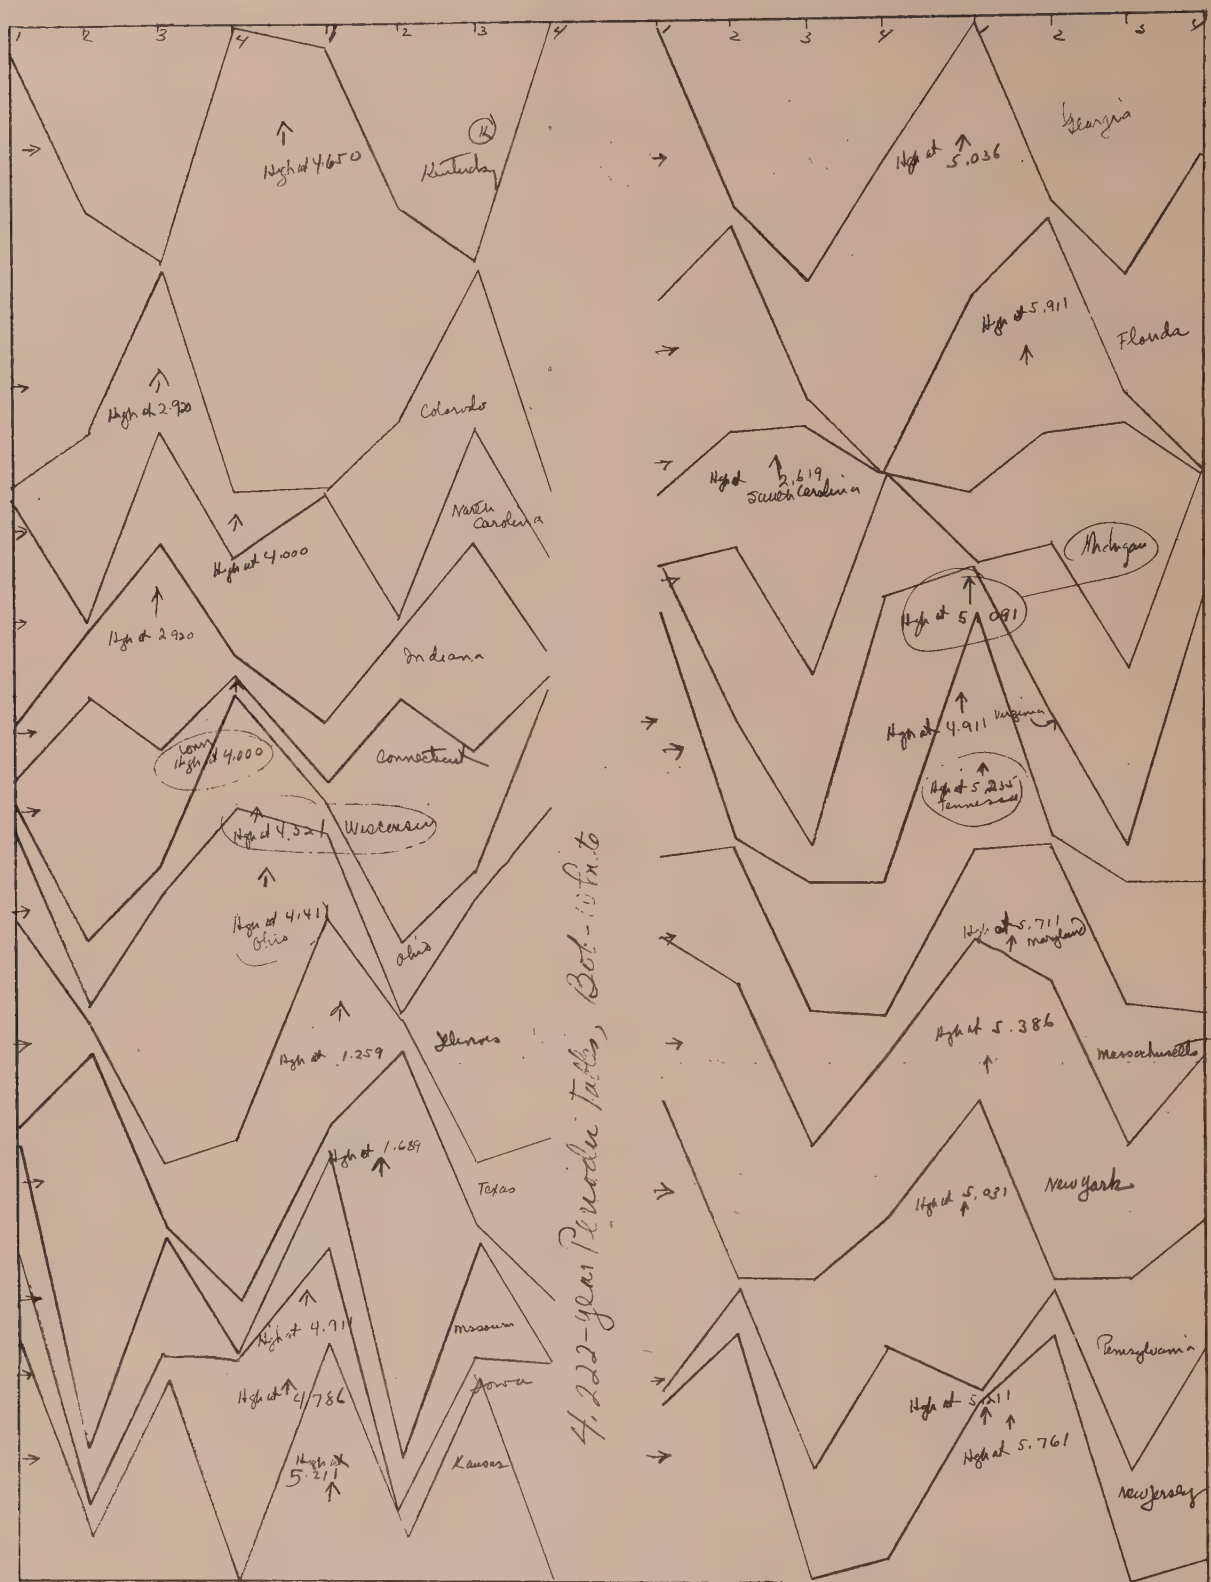 1 2 3 4 1 2 3 4
1 2 3 4 1 2 3 4
High at 4.650
K
Kentucky
High at 2.920
Colorado
North
Carolina
High at 4.000
High at 2.920
Indiana
Conn
High at 4.000
Connecticut
High at 4.321 Wisconsin
High at 4.141
Ohio
Ohio
High at 1.259
Illinois
High at 1.689
Texas
High at 4.711
Missouri
High at 4.786
Iowa
High at
5.211
Kansas
4.222-year Periodic Tables,
High at
5.036
Georgia
High at 5.911
Florida
High at
2.619
South Carolina
Michigan
High at 5.091
High at 4.911 Virginia
High at 5.235
Tennessee
High at 5.711
Maryland
High at 5.386
Massachusetts
High at 5.031
New York
Pennsylvania
High at 5.211
High at 5.761
New Jersey